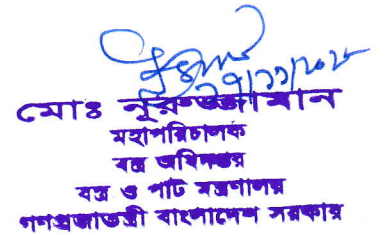 ২৭/১১/২০২৫
মোঃ নূরুজ্জামান
মহাপরিচালক
বস্ত্র অধিদপ্তর
বস্ত্র ও পাট মন্ত্রণালয়
গণপ্রজাতন্ত্রী বাংলাদেশ সরকার